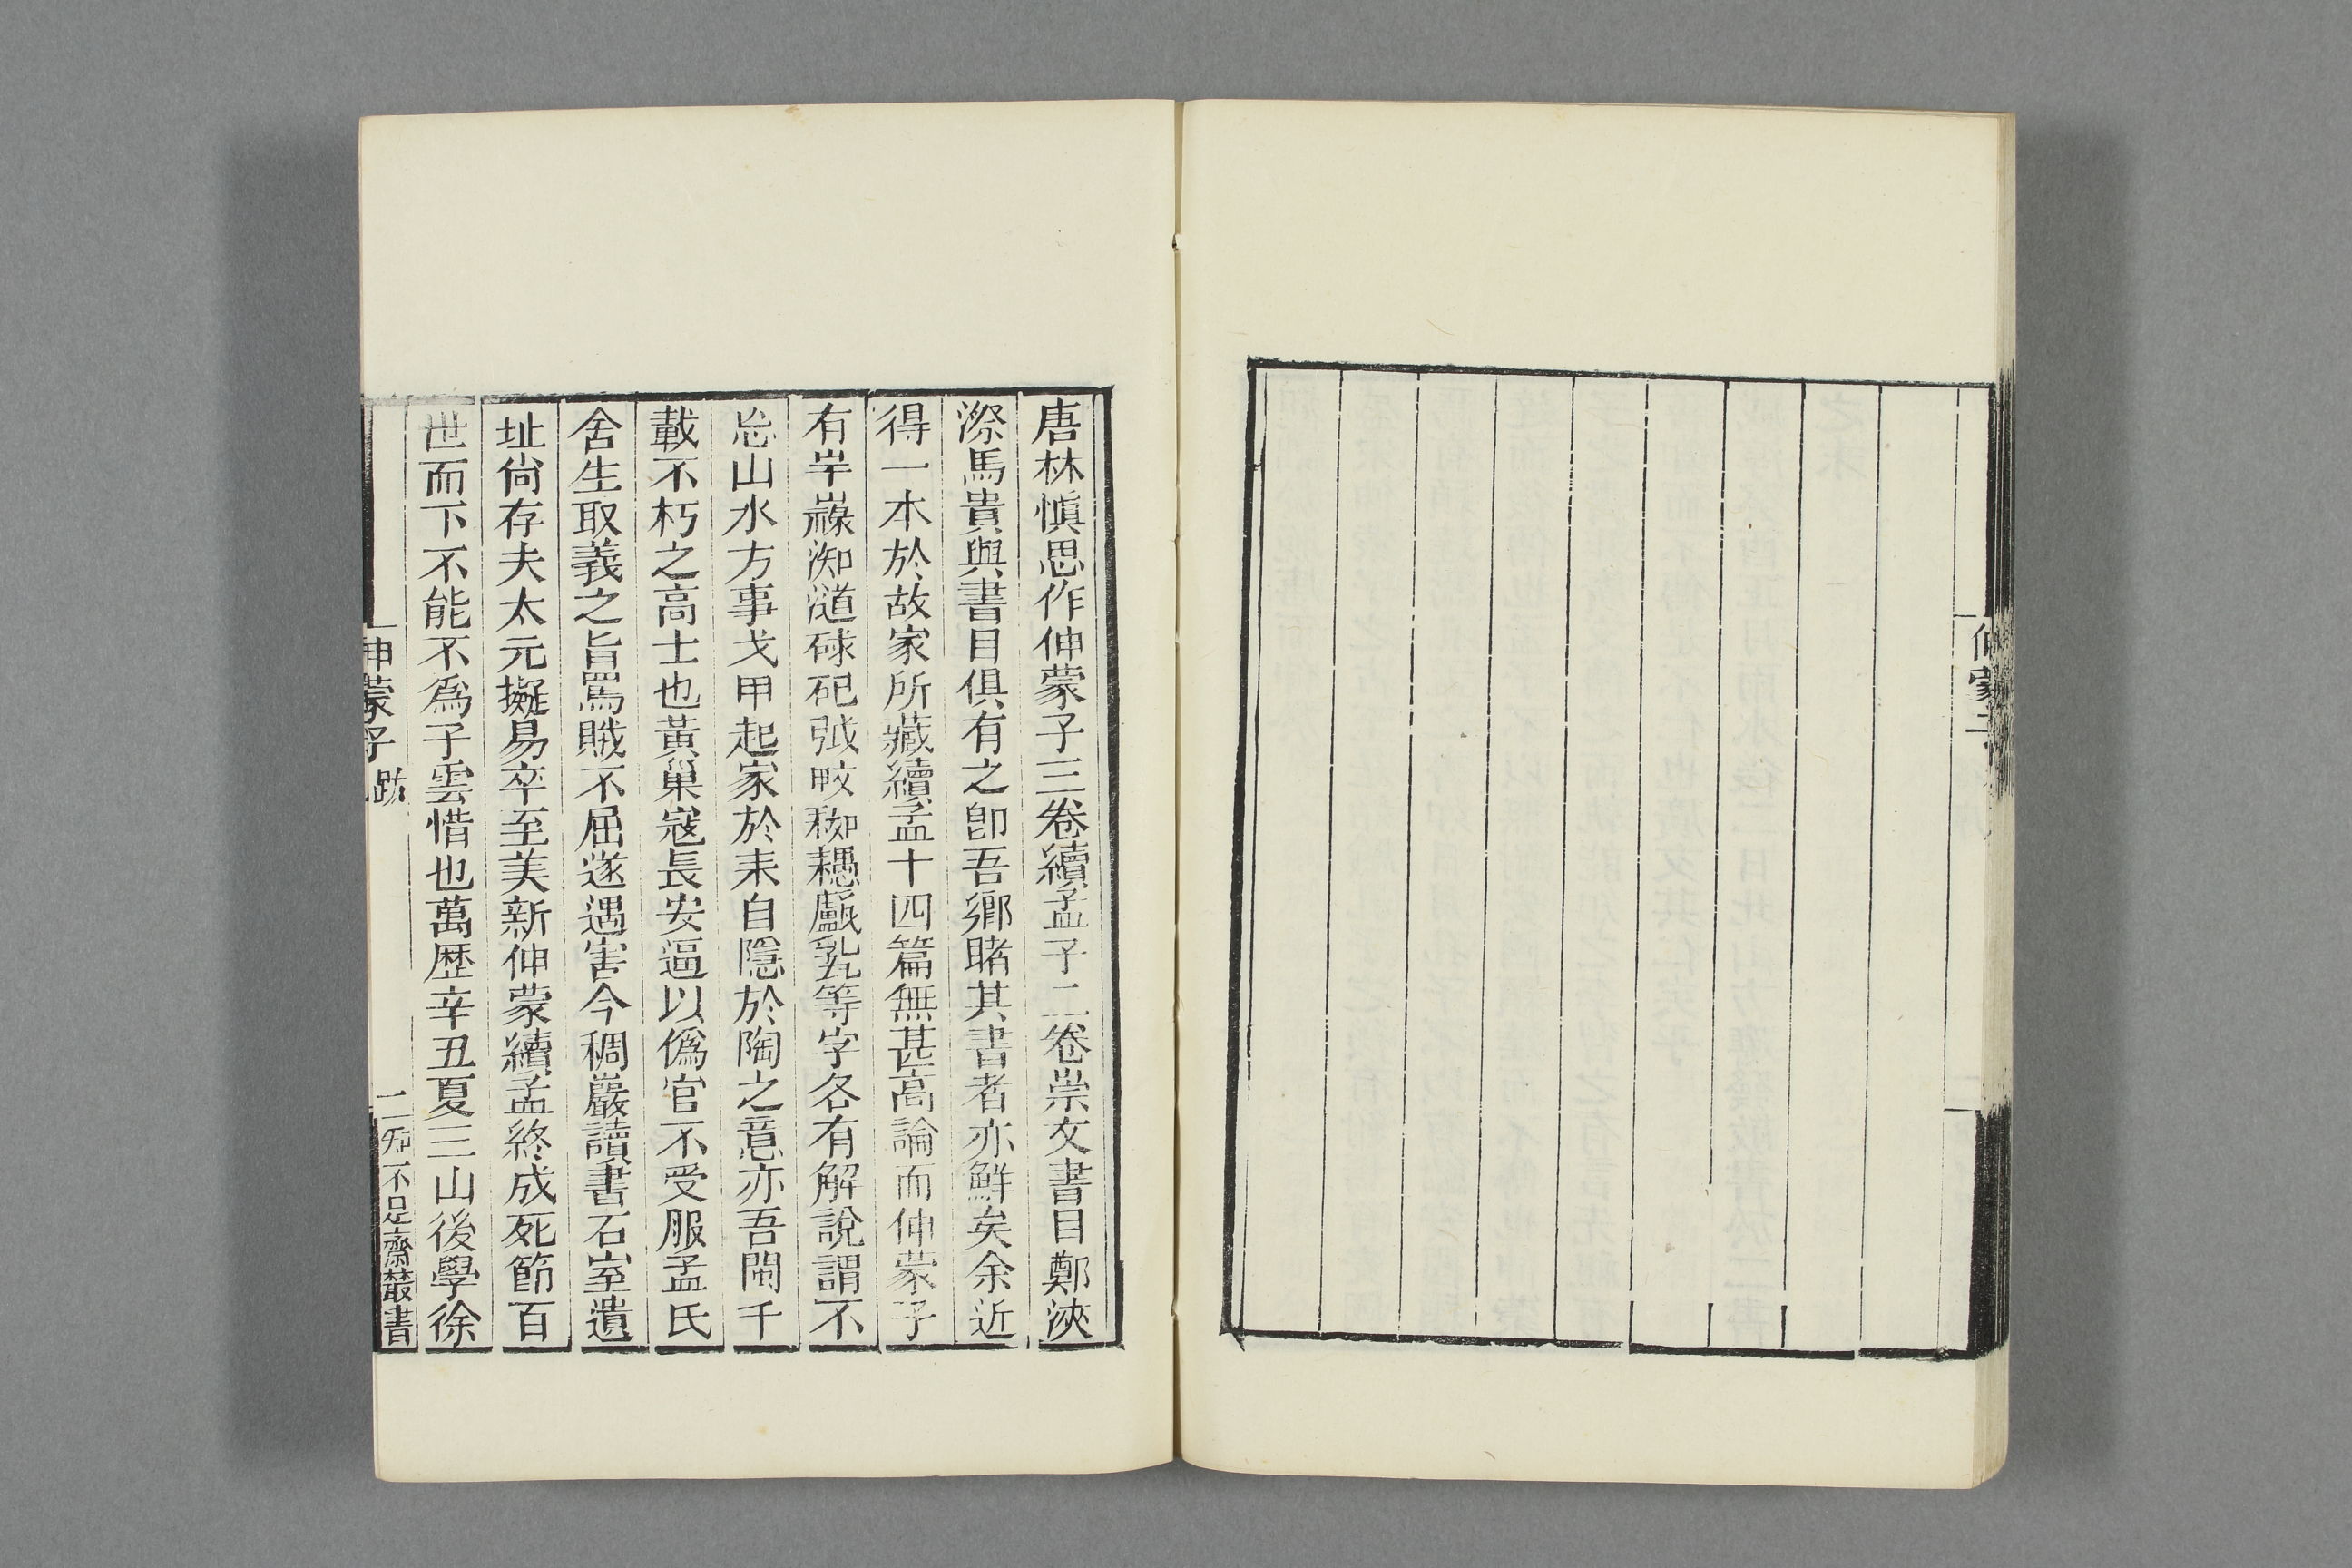 伸蒙子
唐林慎思作伸蒙子三卷續孟子二卷崇文書目鄭浹
漈馬貴與書目俱有之卽吾鄉睹其書者亦鮮矣余近
得一木於故家所藏續孟十四篇無甚高論而伸蒙子
等字各有解說謂不
忘山水方事戈甲起家於耒自隱於陶之意亦吾閩千
載不朽之高士也黃巢寇長安逼以僞官不受服孟氏
舍生取義之旨罵賊不屈遂遇害今稠巖讀書石室遺
址尙存夫太元擬易卒至美新伸蒙續孟終成死節百
世而下不能不爲子雲惜也萬歷辛丑夏三山後學徐
伸蒙子 跋 二 知不足齋叢書